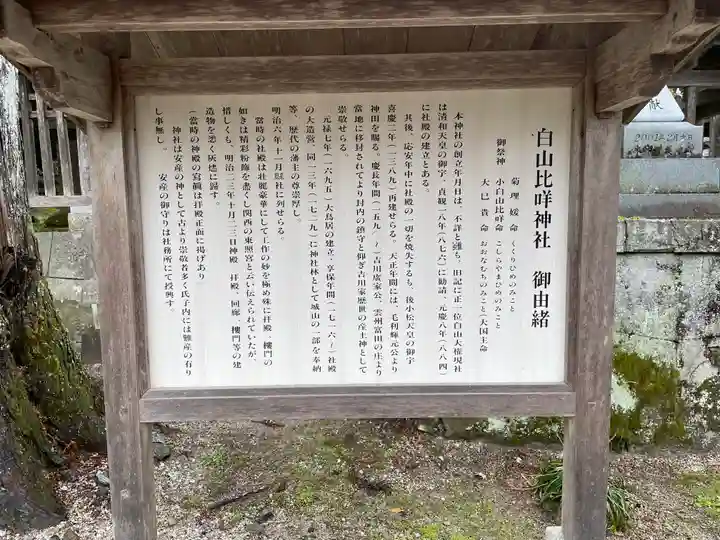 白山比咩神社　御由緒
御祭神　菊理媛命　くくりひめのみこと
小白山比咩命　こしらやまひめのみこと
大已貴命　おおなむちのみこと(大国主命
本神社の創立年月日は、不詳と雖も、旧記に正一位白山大権現社
は清和天皇の御宇、貞観一八年(八七六)に勧請、元慶八年(八八四)
に社殿の建立とある。
其後、応安年中に社殿の一切を焼失するも、後小松天皇の御宇
喜慶二年(一三八九)再建せらる。天正年間には、毛利輝元公より
神田を賜る。慶長年間(一五九八〜)吉川廣家公、雲州富田の庄より
当地に移封されてより封内の鎮守と仰ぎ吉川家歴世の産土神として
崇敬せらる。
元禄七年(一六九五)大鳥居の建立、享保年間(一七一六〜)社殿
の大造営、同一三年(一七二九)に神社林として城山の一部を奉納
等、歴代の藩主の尊崇厚し。
明治六年十一月縣社に列せらる。
當時の社殿は壮麗豪華にして工作の妙を極め殊に拝殿、樓門の
如きは精彩粉飾を盡くし関西の東照宮と云い伝えられていたが、
惜しくも、明治二三年十月二三日神殿、拝殿、回廊、樓門等の建
造物を悉く灰燼に歸す。
(當時の神殿の寫眞は拝殿正面に掲げあり
神社は安産の神として古より崇敬者多く氏子内には難産の有り
し事無し。
安産の御守りは社務所にて授興す。
献